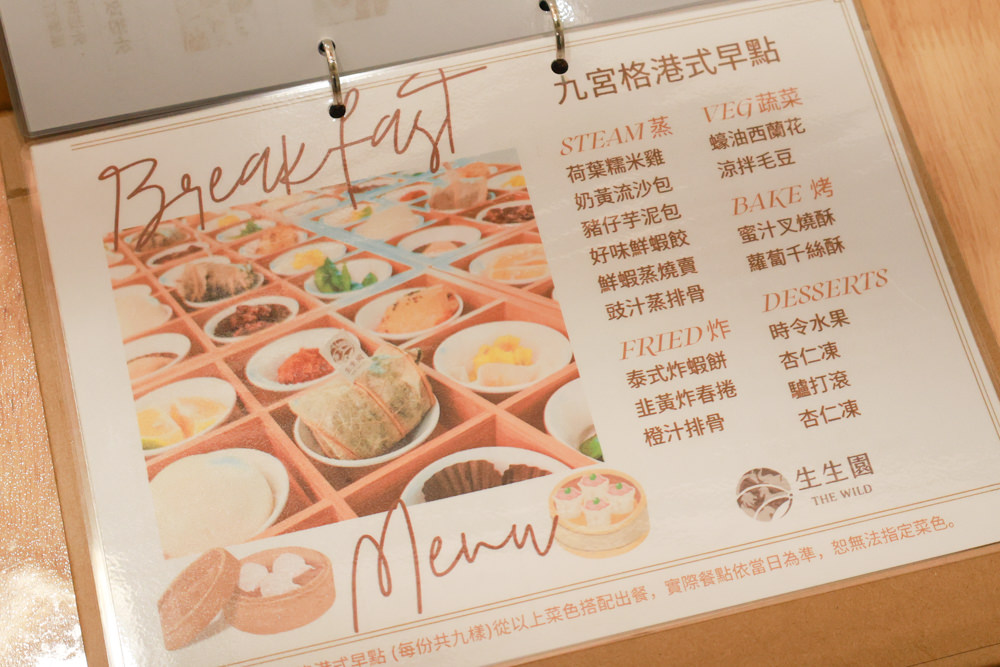 Breakfast
九宮格港式早點
STEAM 蒸
荷葉糯米雞
奶黃流沙包
豬仔芋泥包
好味鮮蝦餃
鮮蝦蒸燒賣
豉汁蒸排骨
FRIED 炸
泰式炸蝦餅
韭黃炸春捲
橙汁排骨
VEG 蔬菜
蠔油西蘭花
涼拌毛豆
BAKE 烤
蜜汁叉燒酥
蘿蔔千絲酥
DESSERTS
時令水果
杏仁凍
驢打滾
杏仁凍
生生園
THE WILD
Menu
港式早點 (每份共九樣)從以上菜色搭配出餐，實際餐點依當日為準，恕無法指定菜色。